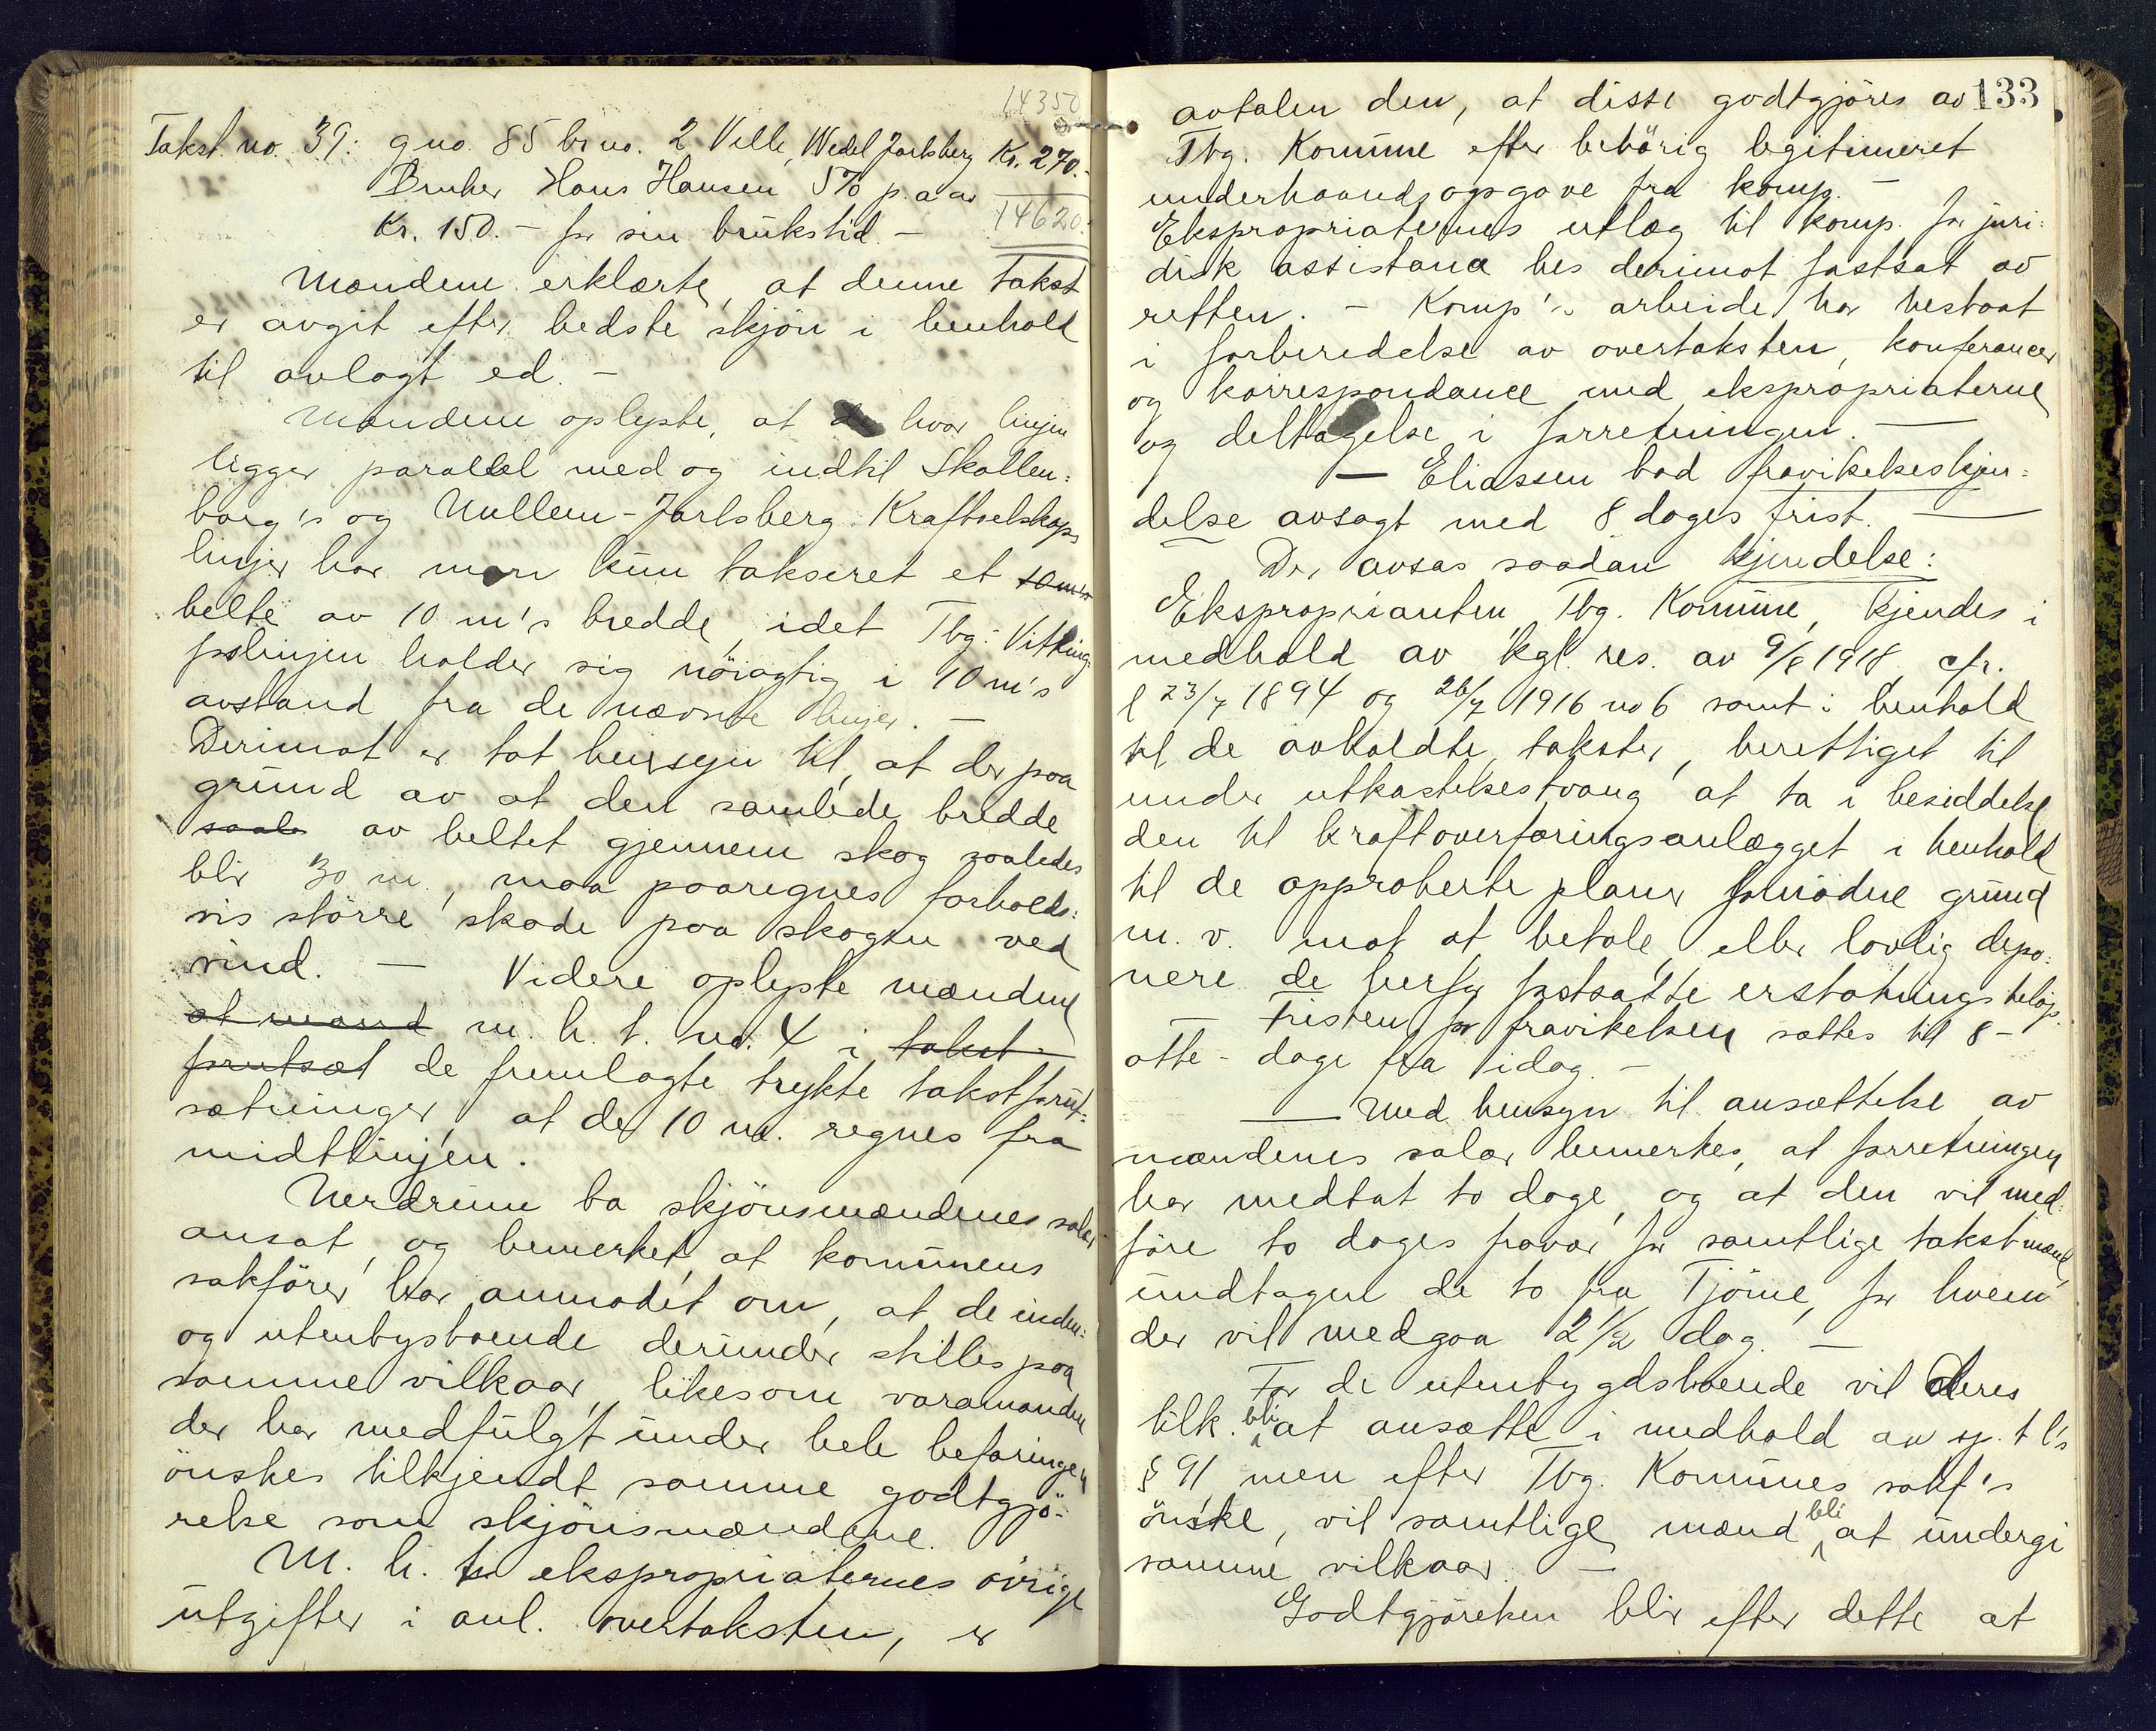 14350
Takst no. 39: gno. 85 brno. 2 Velle, Wedel Jarlsberg Kr. 270.-
Bruker Hans Hansen 5% p.a. av
Kr. 150.- for sin brukstid. -
14620.-
Mændene erklærte, at denne takst
er avgit efter bedste skjön i henhold
til avlagt ed. -
Mændene oplyste, at hvor linjen
ligger parallel med og indtil Skollen-
borg's og Nullem-Jarlsberg Kraftselskaps
linjer har man kun takseret et
belte av 10 m's bredde, idet Tbg.-Vitting-
fosslinjen holder sig nöiagtig i 10 m's
avstand fra de nævnte linjer. -
Derimot er tat hensyn til, at der paa
grund av at den samlede bredde
saale av beltet gjennem skog saaledes
blir 30 m., maa paaregnes forholds-
vis större skade paa skogen ved
vind. - Videre oplyste mændene
at mænd m. h. t. no. 4 i takst-
forutsæt de fremlagte trykte takstforut-
sætninger, at de 10 m. regnes fra
midtlinjen.
Nerdrum ba skjönsmændenes salær
ansat, og bemerket, at kommunens
sakförer har anmodet om, at de inden-
og utenbysboende derunder stilles paa
samme vilkaar, likesom varamanden
der har medfulgt under hele befaringen
önskes tilkjendt samme godtgjö-
relse som skjönsmændene.
M. h. t. ekspropriaternes övrige
utgifter i anl. overtaksten, er
133
avtalen den, at disse godtgjöres av
Tbg. Kommune efter behörig legitimeret
underhaandsopgave fra komp. -
Ekspropriaternes utlæg til komp. for juri-
disk assistance bes derimot fastsat av
retten. - Komp's arbeide har bestaat
i forberedelse av overtaksten, konferancer
og korrespondance med ekspropriaterne
og deltagelse i forretningen. -
- Eliassen bad fravikelseskjen-
delse avsagt med 8 dages frist. -
Der avsas saadan kjendelse:
Eksproprianten, Tbg. Kommune, kjendes i
medhold av kgl. res. av 9/8 1918 cfr.
l 23/7 1894 og 26/7 1916 no 6 samt i henhold
til de avholdte takster, berettiget til
under utkastelsestvang at ta i besiddelse
den til kraftoverføringsanlægget i henhold
til de approberte planer fornödne grund
m. v. mot at betale eller lovlig depo-
nere de herfor fastsatte erstatningsbeløp.
Fristen for fravikelsen sættes til 8 -
otte - dage fra idag. -
- Med hensyn til ansættelse av
mændenes salær bemerkes, at forretningen
har medtat to dage, og at den vil med-
före to dages fravær for samtlige takstmænd,
undtagen de to fra Tjöme, for hvem
der vil medgaa 2 1/2 dag. -
For de utenbygdsboende vil deres
tilk. bli at ansætte i medhold av sp. t l's
§ 91, men efter Tbg. Kommunes sakf's
önske, vil samtlige mænd bli at undergi
samme vilkaar. -
Godtgjörelsen blir efter dette at